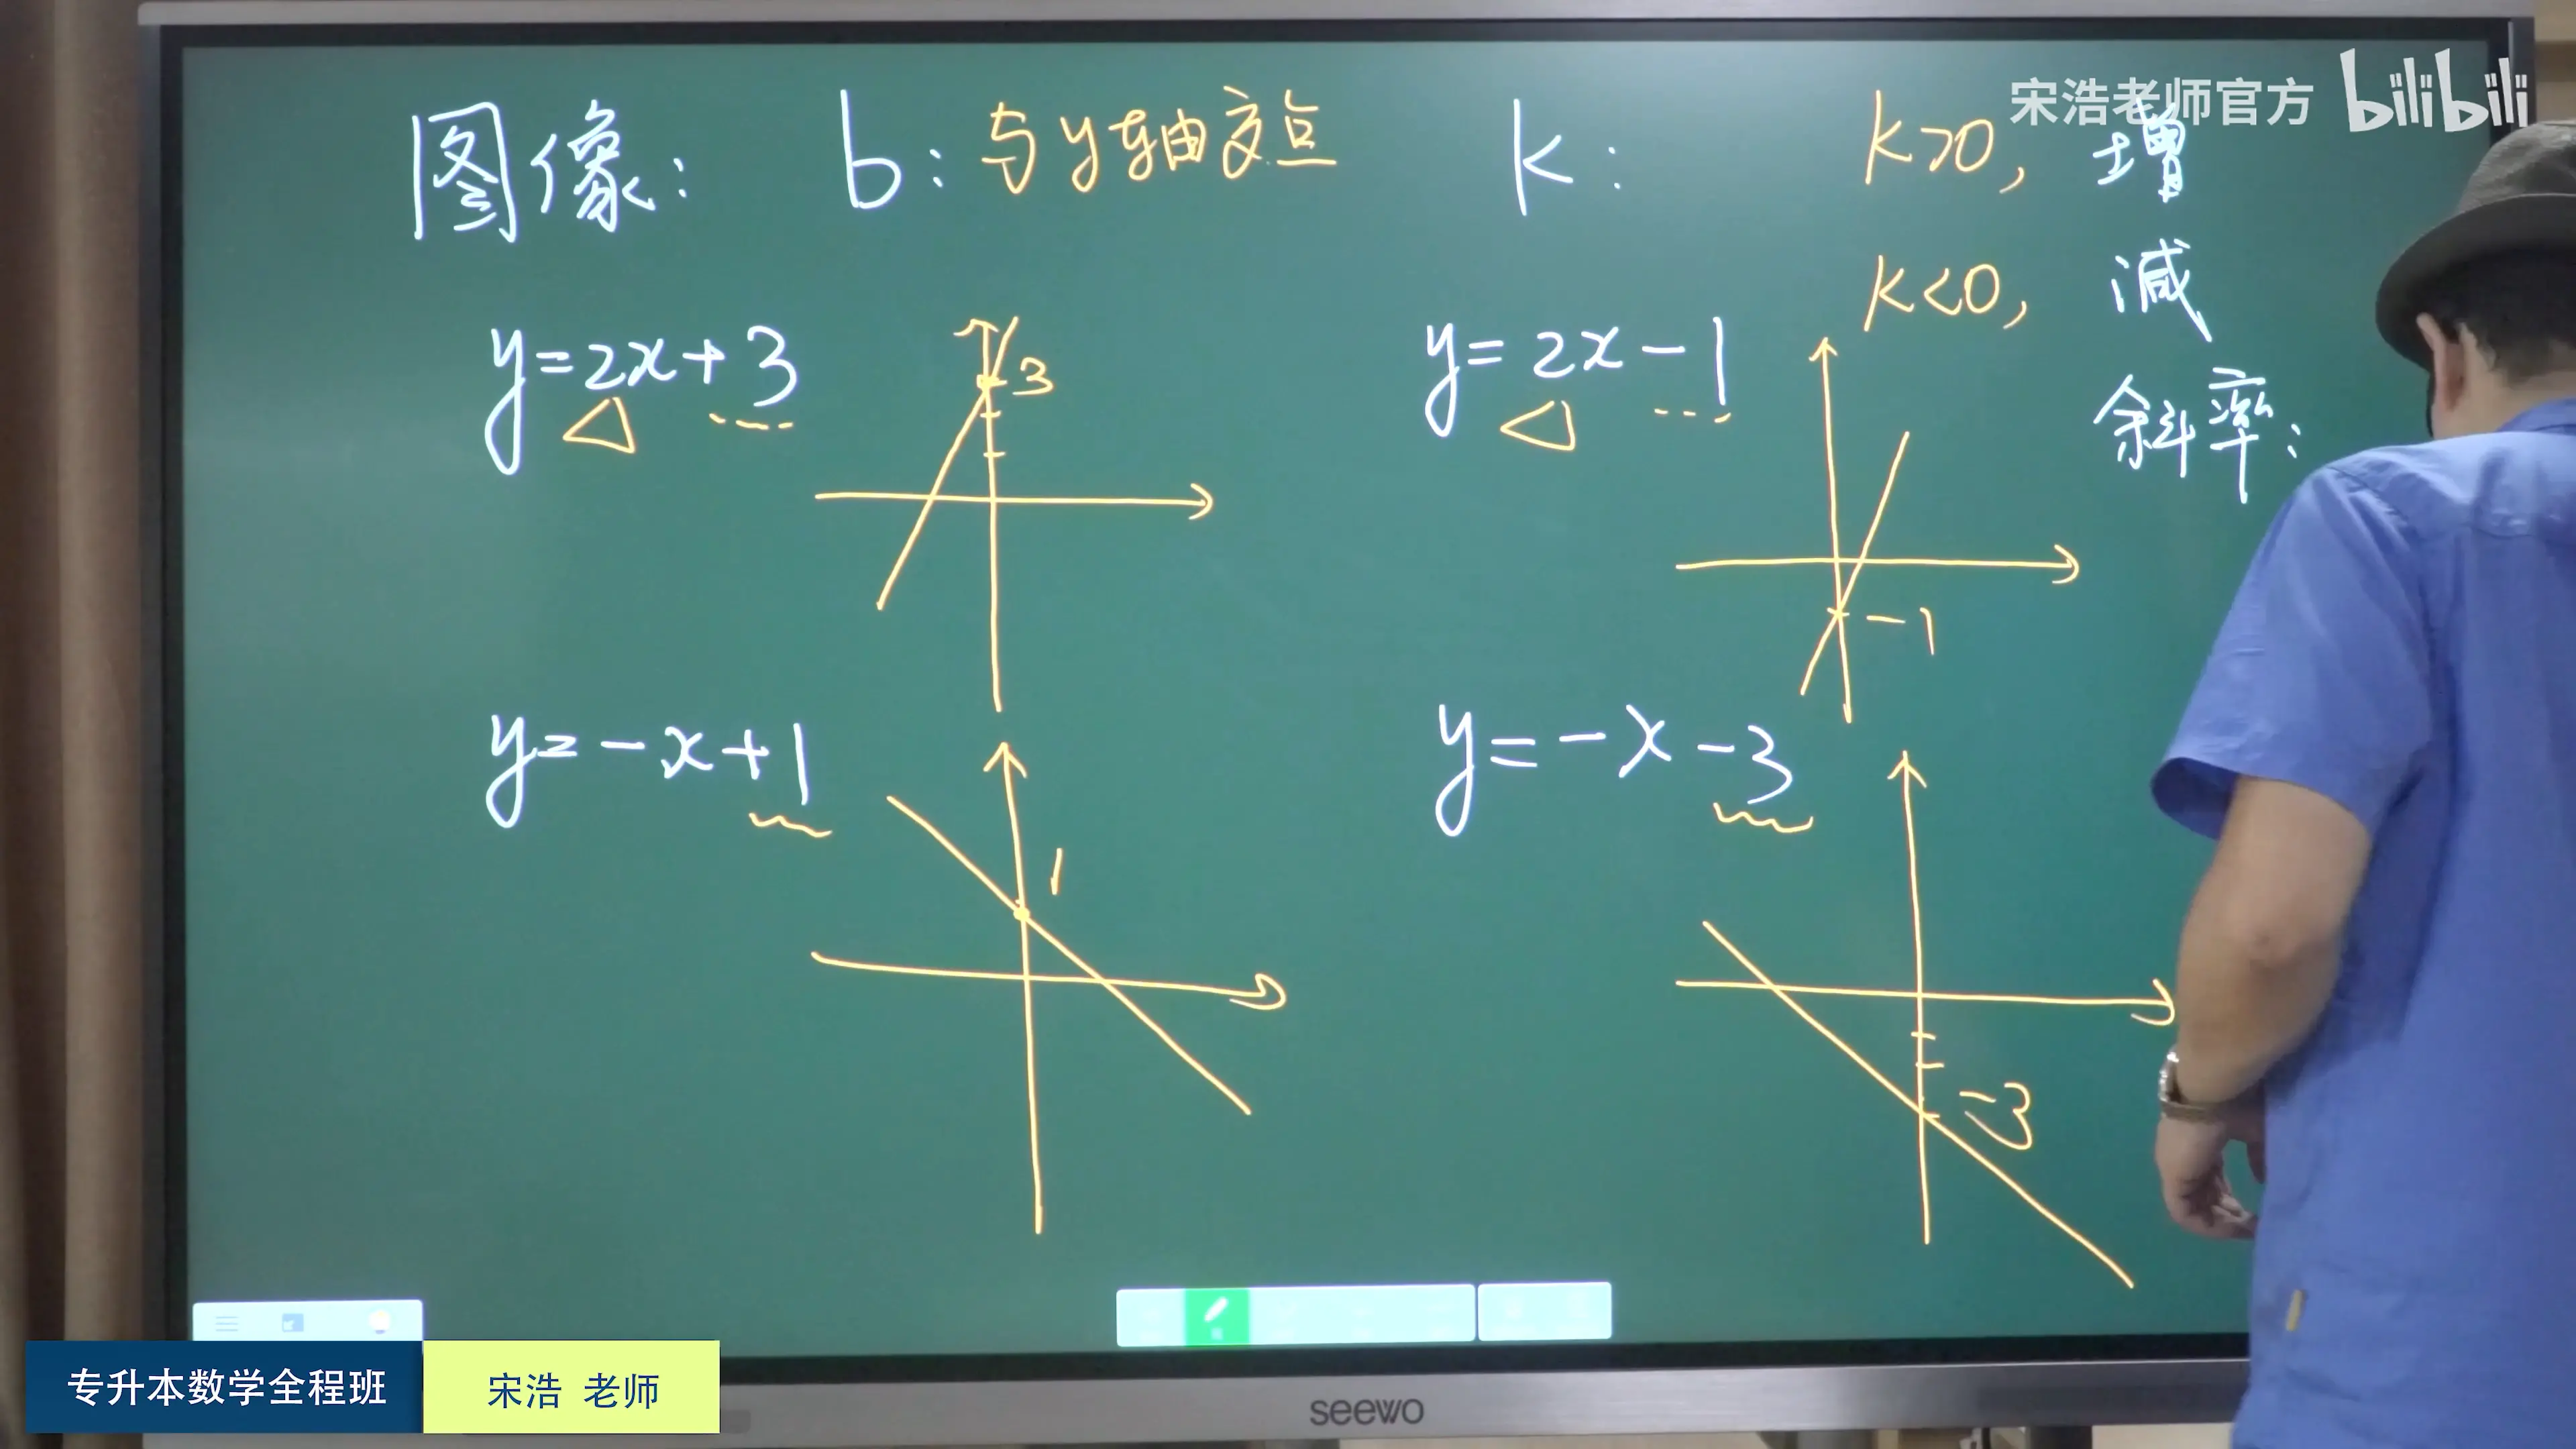 宋浩老师官方 bilibili
图像: b: 与y轴交点 k: k>0, 增
k<0, 减
斜率:
y=2x+3
3
y=2x-1
-1
y=-x+1
1
y=-x-3
-3
专升本数学全程班 宋浩 老师
seewo